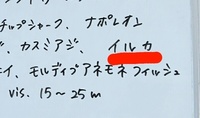 チップシャーク、ナポレオン
、カスミアジ、イルカ
イ、モルディブアネモネフィッシュ
vis. 15~25m